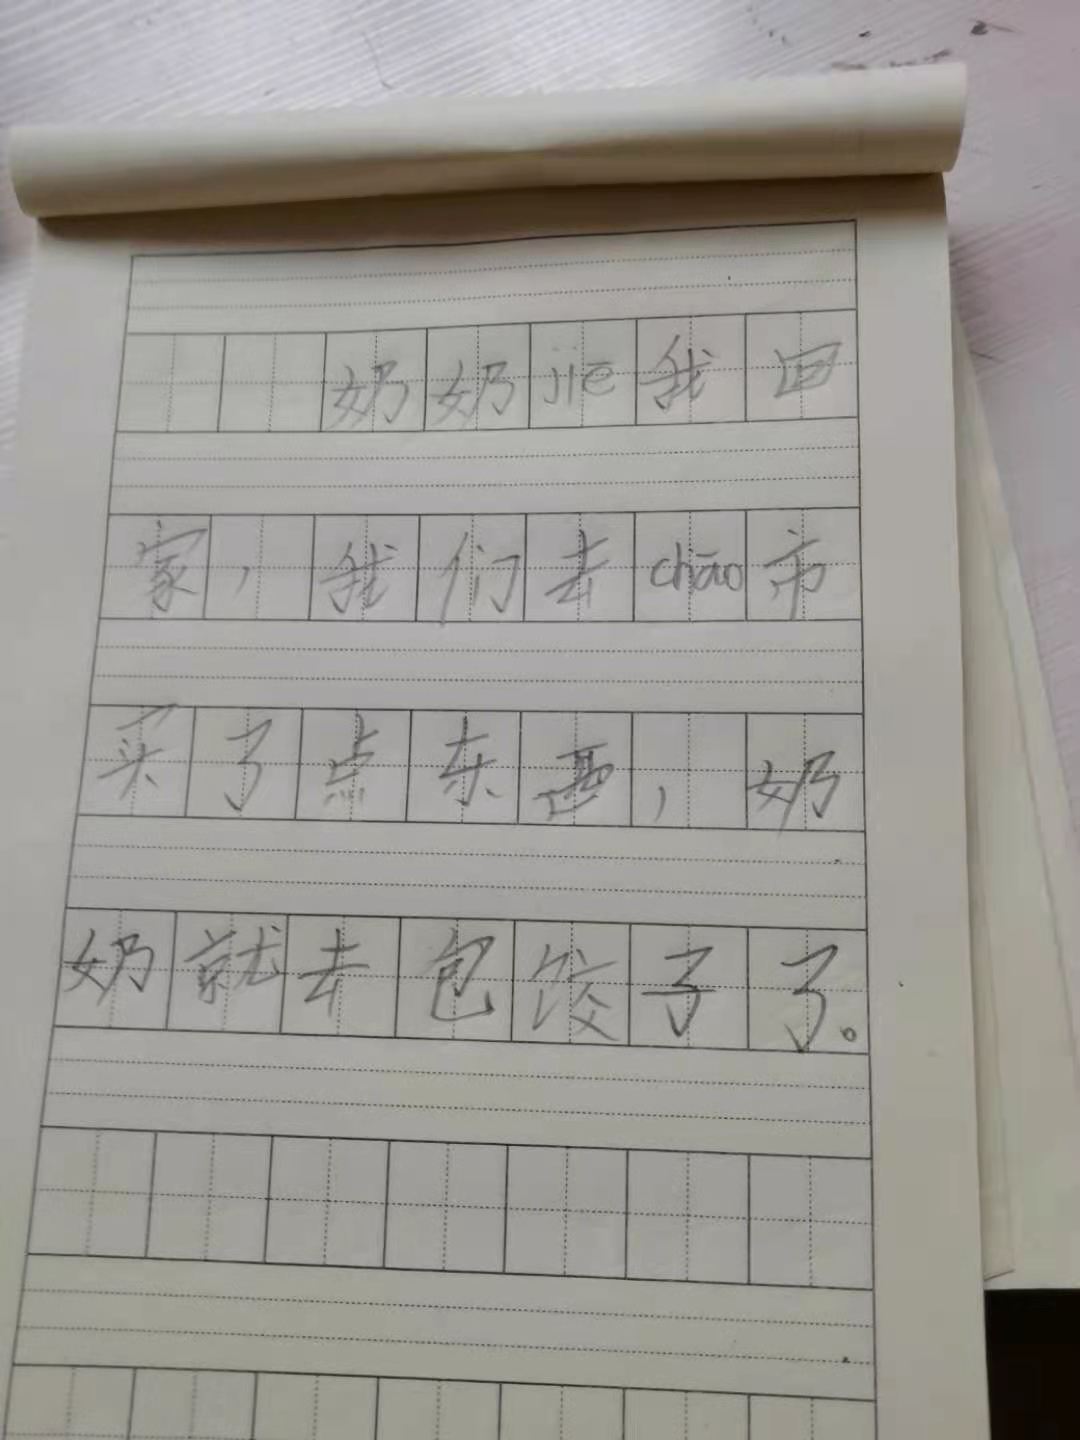 奶奶jiē我回
家，我们去chāo市
买了点东西，奶
奶就去包饺子了。